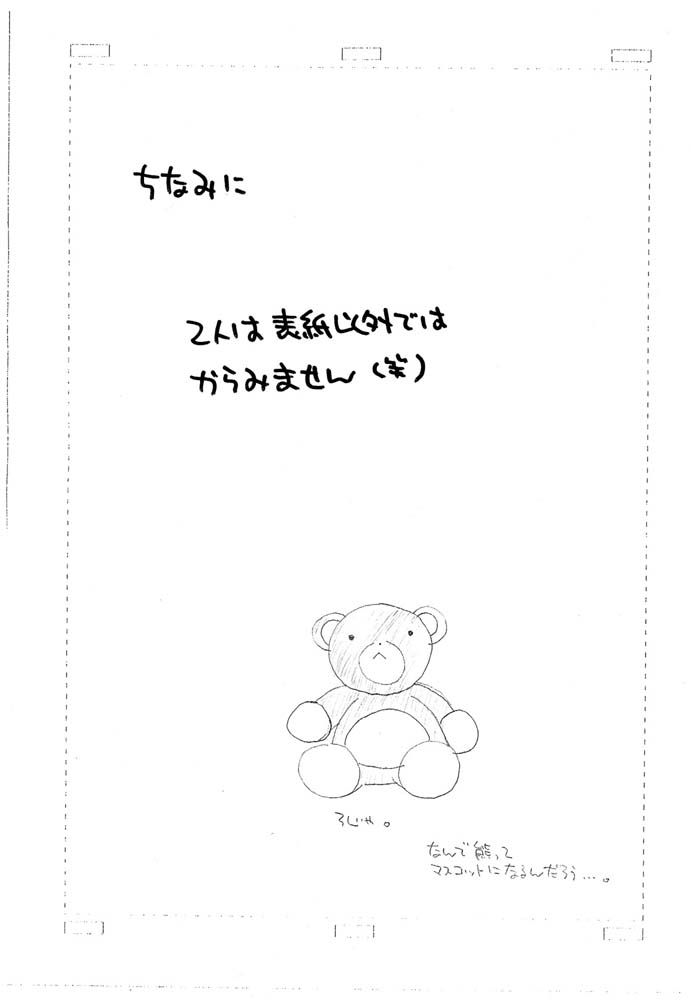 ちなみに
2人は表紙以外では
からみません(笑)
ろじゃ。
なんで熊って
マスコットになるんだろう…。